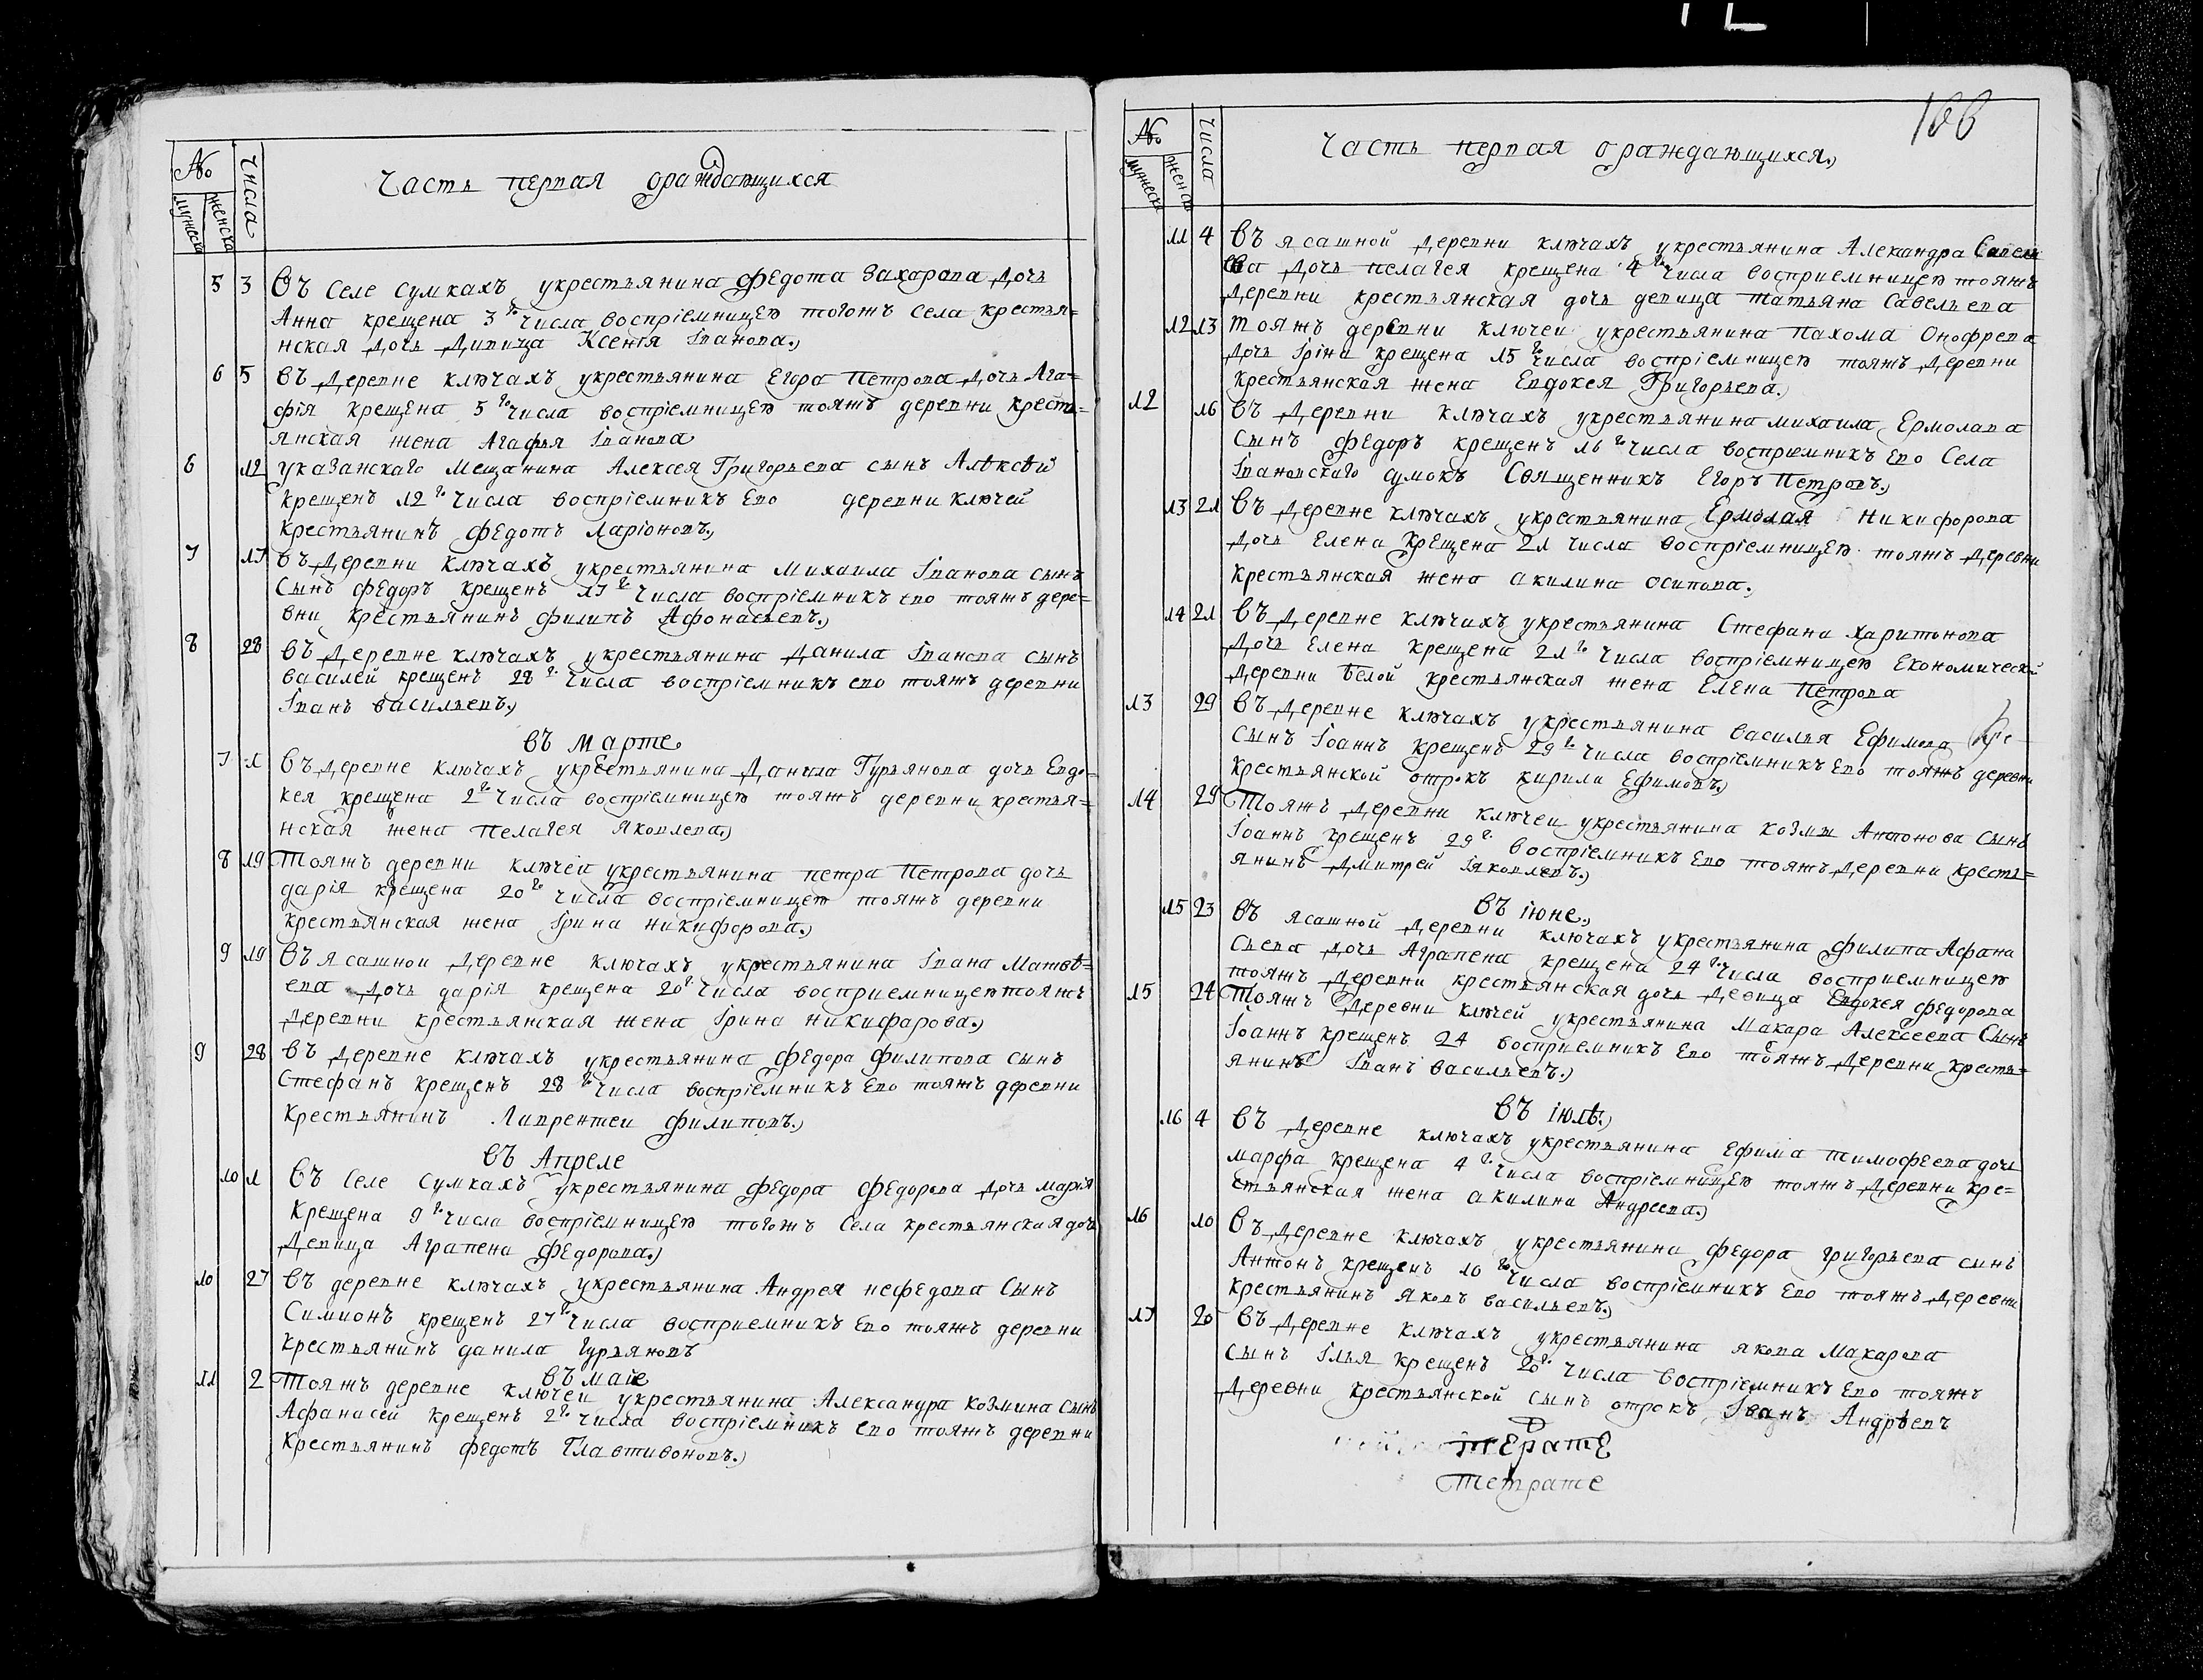 №
Числа
Мужеска
женска
Часть первая ораждающихся
5 3 Въ селе сумкахъ укрестьянина Федота Захарова дочь
Анна крещена 3 го числа воспріемницею тогожъ села крестья=
нская дочь Дивица Ксенія Іванова.
6 5 Въ Деревне ключахъ укрестьянина Егора Петрова дочь Ага=
фія крещена 5 го числа воспріемницею тояжъ деревни кресть=
янская жена Агафья Іванова
6 12 Указанскаго Мещанина Алексея Григорьева сынъ Алѣксѣй
крещенъ 12 го числа воспріемникъ Ево деревни ключей
крестьянинъ Федотъ Ларіоновъ.
7 17 Въ Деревни ключахъ укрестьянина Михаила Іванова сынъ
Сынъ Федоръ крещенъ 17 го числа воспріемникъ ево тояжъ дере=
вни крестьянинъ филипъ Афонасьевъ.
8 28 Въ Деревне ключахъ укрестьянина Данила Іванова сынъ
василей крещенъ 28 го числа воспріемникъ ево тояжъ деревни
Іванъ васильевъ.
Въ Марте
7 1 Въ деревне ключахъ укрестьянина Данила Гурьянова дочь Евдо=
кея крещена 2 го числа воспріемницею тояжъ деревни крестья=
нская жена пелагея Яковлева.
8 19 Тояжъ деревни ключей укрестьянина петра Петрова дочь
дарія крещена 20 го числа воспріемницею тояжъ деревни
крестьянская жена Ірина никифорова.
9 19 Въ Ясашной Деревне ключахъ укрестьянина Івана Матвѣ=
ева дочь дарія крещена 20 го числа восприемницею тояжъ
деревни крестьянская жена Ірина никифарова.
9 28 Въ Деревне ключахъ укрестьянина Федора Филипова сынъ
Стефанъ крещенъ 28 го числа воспріемникъ Ево тояжъ деревни
крестьянинъ Лаврентеи филиповъ.
Въ Апреле
10 1 Въ Селе Сумкахъ укрестьянина Федора Федорова дочь марія
крещена 9 го числа воспріемницею тогожъ Села крестьянская дочь
Девица Аграпена Федорова.
10 27 Въ деревне ключахъ укрестьянина Андрея нефедова Сынъ
Симионъ крещенъ 27 го числа восприемникъ Ево тояжъ деревни
крестьянинъ данила Гурьяновъ
Въ маіе
11 2 Тояжъ деревне ключеи укрестьянина Александра козмина сынъ
Афанасей крещенъ 2 го числа воспріемникъ ево тояжъ деревни
крестьянинъ Федотъ Главтивоновъ.
№
Числа
Мужеска
женска
Часть первая ораждающихся.
11 4 Въ ясашной деревни ключахъ укрестьянина Александра Савель
ева дочь пелагея крещена 4 го числа восприемницею тояжъ
деревни крестьянская дочь девица татьяна Савельева
12 13 Тояжъ деревни ключеи укрестьянина Пахома Онофрева
дочь Іріна крещена 15 го числа воспріемницею тояжъ деревни
крестьянская жена Евдокея Григорьева.
12 16 Въ Деревни ключахъ укрестьянина михаила Ермолава
Сынъ Федоръ крещенъ 16 го числа восприемникъ Ево Села
Івановскаго сумокъ Священникъ Егоръ Петровъ.
13 21 Въ Деревне ключахъ укрестьянина Ермолая Никифорова
дочь Елена крещена 21 числа воспріемницею тояжъ деревни
крестьянская жена акилина осипова.
14 21 Въ Деревне ключахъ укрестьянина Стефана Харитонова
дочь Елена крещена 21 го числа воспріемницею Економической
деревни Белой крестьянская жена Елена Петрова
13 29 Въ Деревне ключахъ укрестьянина василья Ефимова
Сынъ Іоаннъ крещенъ 29 го числа воспріемникъ Ево тояжъ деревни
крестьянской отрокъ кирила Ефимовъ.
14 29 Тояжъ деревни ключеи укрестьянина козмы Антонова Сынъ
Іоаннъ крещенъ 29 го воспріемникъ Ево тояжъ деревни кресть=
янинъ Дмитрей Іяковлевъ.
Въ іюне.
15 23 Въ Ясашной деревни ключахъ укрестьянина филипа Афана
сьева дочь Аграпена крещена 24 го числа восприемницею
тояжъ деревни крестьянская дочь Девица Евдокея федорова
15 24 Тояжъ деревни ключей укрестьянина Макара Алексеева Сынъ
Іоаннъ крещенъ 24 восприемникъ Ево тояжъ деревни кресть=
янинъ Іванъ васильевъ.
Въ іюлѣ.
16 4 Въ Деревне ключахъ укрестьянина Ефима тимофеева дочь
марфа крещена 4 го числа воспріемницею тояжъ деревни кре=
стьянская жена акилина Андреева.
16 10 Въ Деревне ключахъ укрестьянина Федора григорьева сынъ
Антонъ крещенъ 10 го числа воспріемникъ Ево тояжъ деревни
крестьянинъ Яковъ васильевъ.
17 20 Въ Деревне ключахъ укрестьянина якова Макарова
Сынъ Ілья крещенъ 20 го числа воспріемникъ Ево тояжъ
деревни крестьянской сынъ отрокъ Іванъ Андрѣевъ